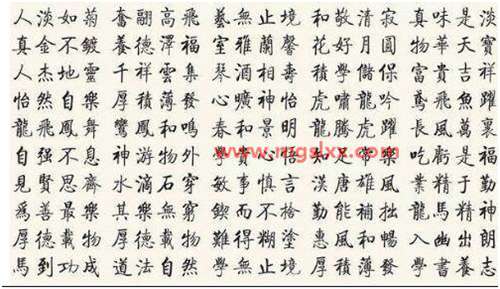 人淡如菊 奮翮高飛 藝無止境 和敬清寂 真味是淡
真金不鍍 養德澤福 室雅蘭馨 花好月圓 物華天寶
人杰地靈 千祥雲集 琴酒相壽 積學儲保 富貴吉祥
怡然自樂 厚積薄發 曠神怡 虎嘯龍吟 鳶飛魚躍
龍飛鳳舞 鸞鳳和鳴 春和景明 龍騰虎躍 長風萬裏
自强不息 神游物外 知足常樂 吃虧是福
見賢思齊 水滴石穿 敏事慎言 漢唐雄風 業精于勤
爲善最樂 其樂無窮 鍥而不捨 勤能補拙 龍馬精神
厚德載物 厚德載物 難得糊塗 惠風和暢 入幽出朗
馬到功成 道法自然 學無止境 厚積薄發 學書養志